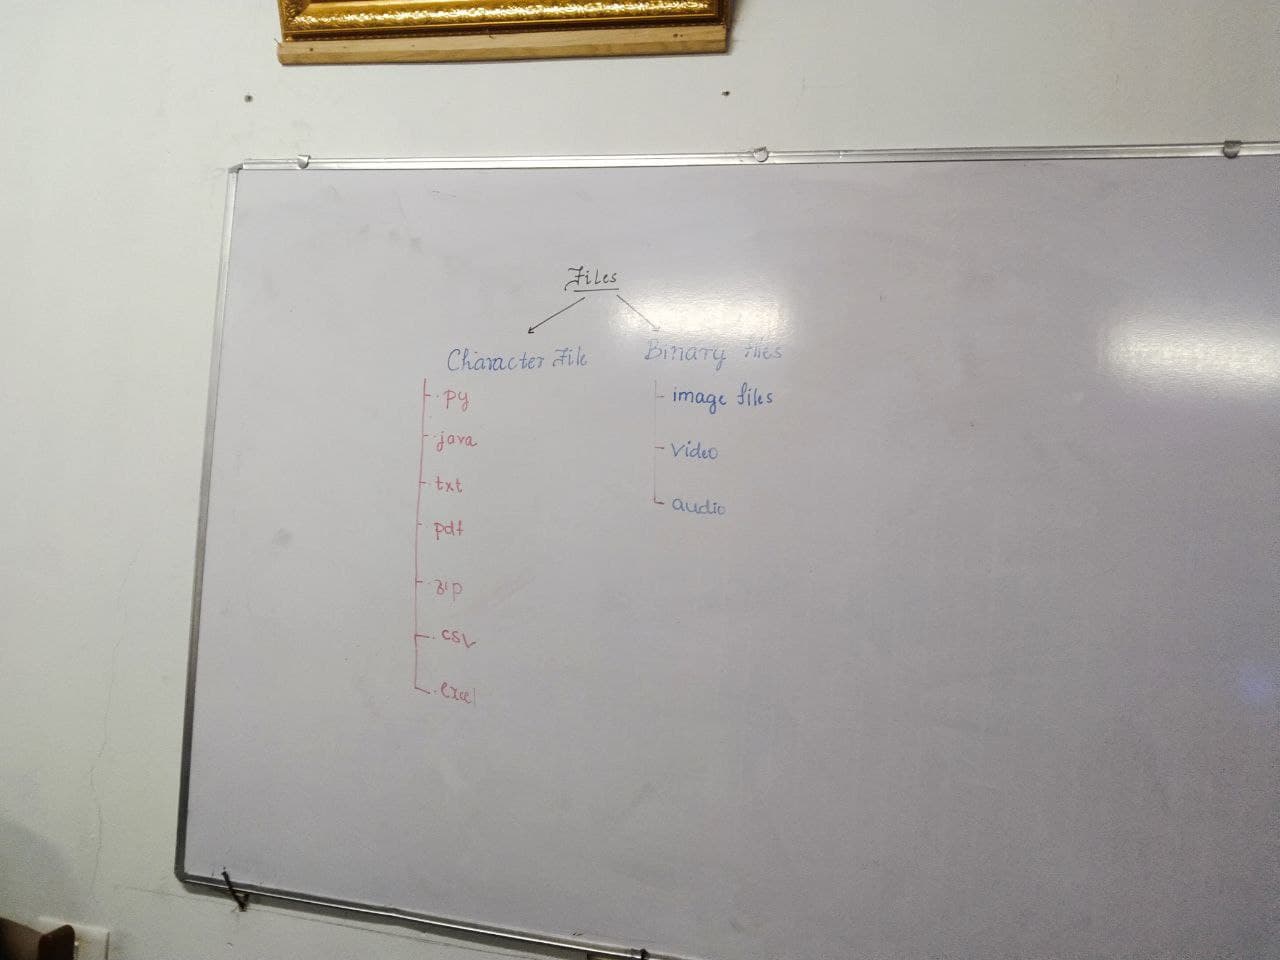 Files
Character File
.py
.java
.txt
.pdf
.zip
.csv
.excel
Binary files
image files
video
audio